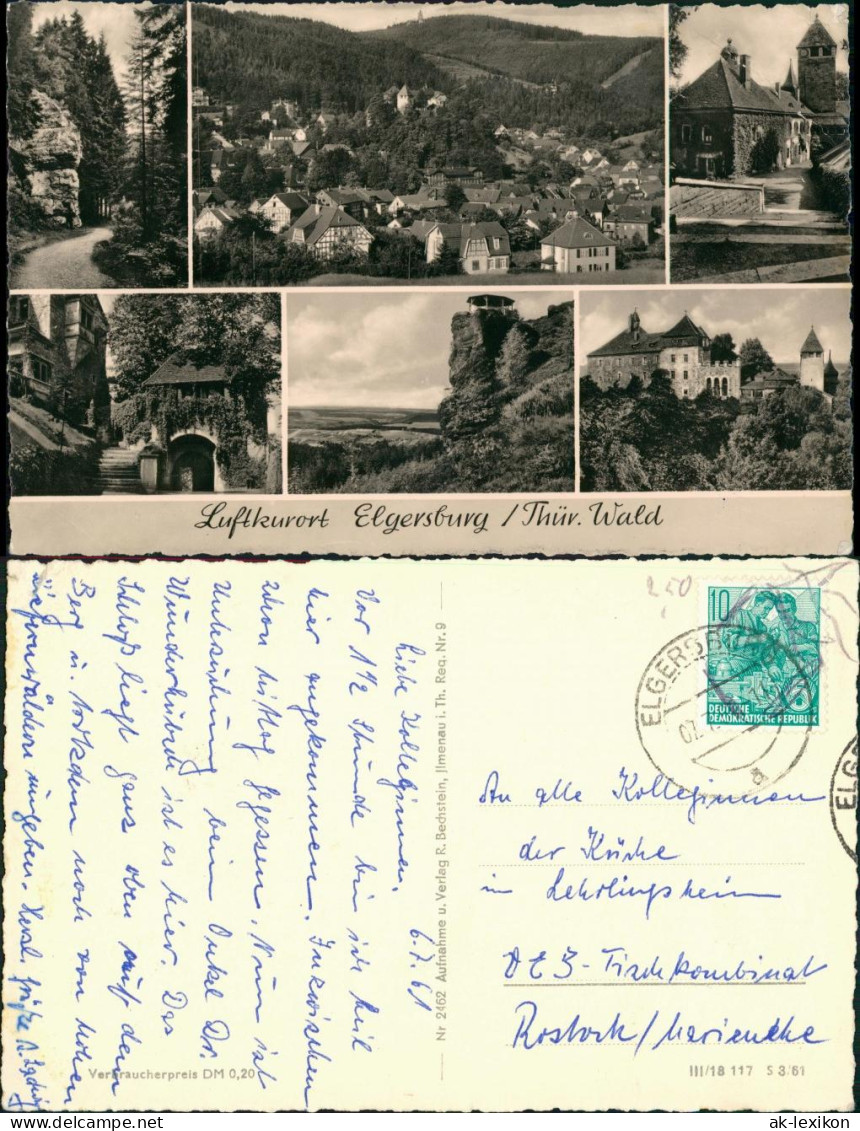 Luftkurort Elgersburg / Thür. Wald
250
10
DEUTSCHE
DEMOKRATISCHE REPUBLIK
ELGERSB
07.
a
ELG
6.7.61
Liebe Kolleginnen,
Vor 1½ Stunde bin ich heil
hier angekommen. Inzwischen
schon Mittag gegessen. Nun ist
Untersuchung beim Onkel Dr.
Wunderhübsch ist es hier. Das
Schloß liegt ganz oben auf dem
Berg u. trotzdem noch von hohen
wäldern umgeben. Herzl. Grüße
Nr 2462 Aufnahme u. Verlag R. Bechstein, Jlmenau i. Th. Reg. Nr. 9
An alle Kolleginnen
der Küche
im Lehrlingsheim
VEB-Fischkombinat
Rostock/Marienehe
Verbraucherpreis DM 0,20
III/18 117 S 3/61
ak-lexikon